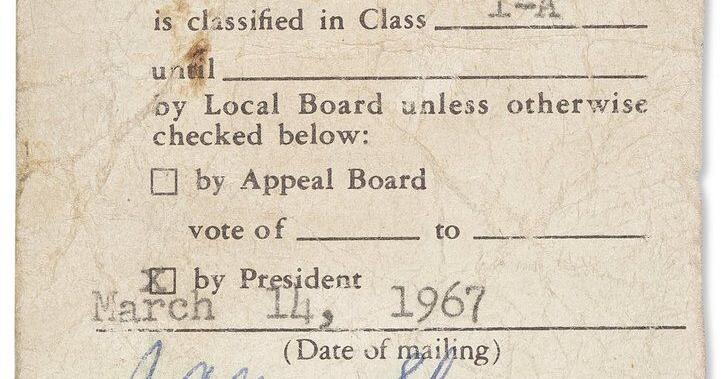 is classified in Class 1-A
until
by Local Board unless otherwise
checked below:
☐ by Appeal Board
vote of ________ to ________
☒ by President
March 14, 1967
(Date of mailing)